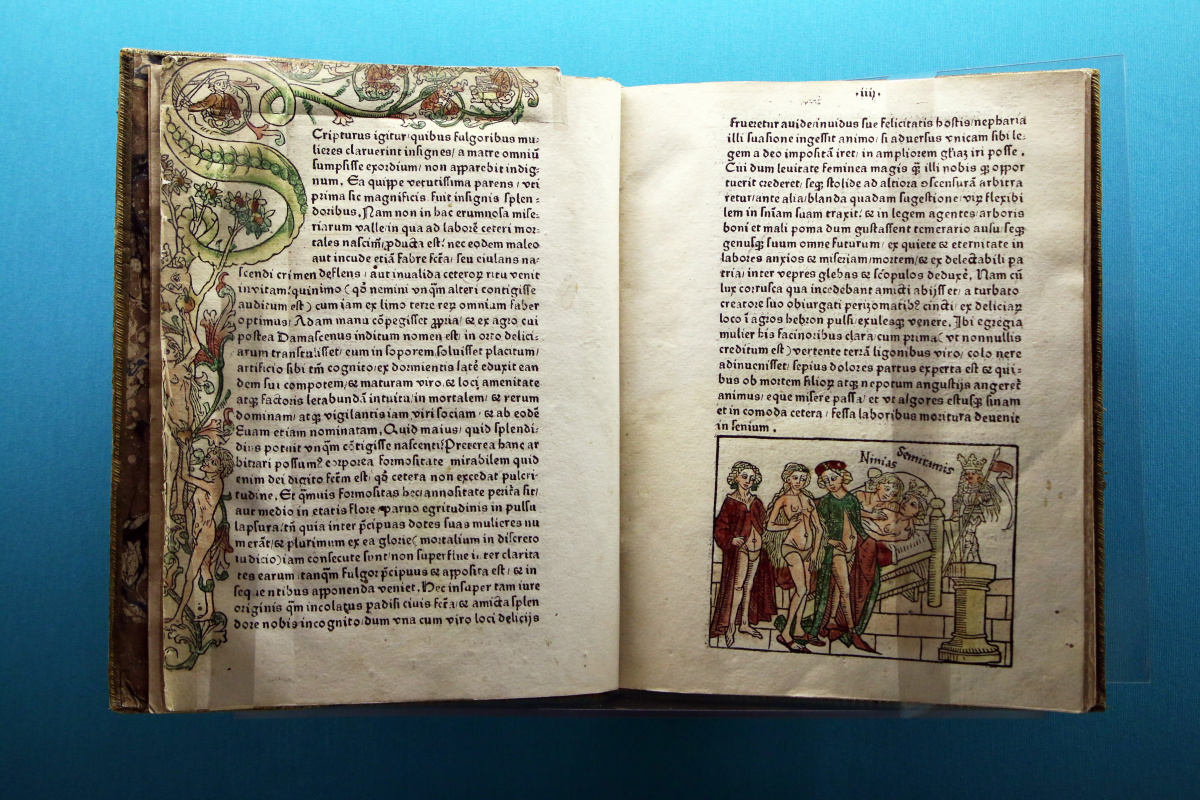 Cripturus igitur quibus fulgoribus mu⸗
lieres claruerint insignes/ a matre omniū
sumpsisse exordium/ non apparebit indig⸗
num. Ea quippe vetutissima parens/ vti
prima sic magnificis fuit insignis splen⸗
doribus. Nam non in hac erumnosa mise⸗
riarum valle/in qua ad laborē ceteri mor⸗
tales nascim/ ꝓducta est/ nec eodem maleo
aut incude etiā fabrefcā/ seu eiulans na⸗
scendi crimen deflens/ aut inualida ceteroꝝ ritu venit
in vitam/quinimo (qđ nemini vnꝗm alteri contigisse
auditum est) cum iam ex limo terre reꝝ omnium faber
optimus/ Adam manu cōpegisset ꝓpria/ & ex agro cui
postea Damascenus inditum nomen est/ in orto delici⸗
arum transtulisset/ cum in soporem soluisset placitum/
artificio sibi tm̄ cognito/ ex dormientis latē eduxit ean
dem sui compotem/ & maturam viro/ & loci amenitate
atqꝫ factoris letabundā intuitu/ in mortalem/ & rerum
dominam/ atqꝫ vigilantis iam viri sociam/ & ab eodē
Euam etiam nominatam. Quid maius/ quid splendi⸗
dius potuit vnꝗm cōtigisse nascenti? Preterea hanc ar
bitrari possumꝰ corporea formositate mirabilem quid
enim dei digito fcm̄ est/ qđ cetera non excedat pulcri⸗
tudine. Et ꝗmuis formositas hec/ annositate peritā sit/
aut medio in etatis flore paruo egritudinis in pulsu
lapsura/ tn̄ quia inter p̄cipuas dotes suas mulieres nu
merāt/ & plurimum ex ea glorie( mortalium in discreto
iudicio)iam consecute sunt/ non superflue inter clarita
tes earum/ tanꝗm fulgor p̄cipuus & apposita est/ & in
sequentibus apponenda veniet. Hec insuper tam iure
originis ꝗm incolatus padisi ciuis fcā/ & amicta splen
dore nobis incognito/ dum vna cum viro loci delicijs
·iiij·
frueretur auide/ inuidus sue felicitatis hostis/ nepharia
illi suasione ingessit animo/ si aduersus vnicam sibi le⸗
gem a deo impositā iret/ in ampliorem gl̄iaꝫ iri posse.
Cui dum leuitate feminea magis ꝗ̄ illi nobis qꝫ oppor
tuerit crederet/ seqꝫ stolide ad altiora ↄscensurā arbitra
retur/ ante alia/ blanda quadam sugestione/ viꝝ flexibi
lem in sn̄iam suam traxit/ & in legem agentes/ arboris
boni et mali poma dum gustassent temerario ausu/ seqꝫ
genusqꝫ suum omne futurum/ ex quiete & eternitate in
labores anxios & miseriam/mortem/& ex delectabili pa
tria/ inter vepres glebas & scopulos deduxē. Nam cū
lux corusca qua incedebant amicti abijsset/ a turbato
creatore suo obiurgati perizomatibꝰ cincti/ ex deliciaꝝ
loco ī agros hebron pulsi/ exulesqꝫ venere. Ibi egregia
mulier his facinoribus clara/ cum prima( vt nonnullis
creditum est) vertente terrā ligonibus viro/ colo nere
adinuenisset/ sepius dolores partus experta est & qui⸗
bus ob mortem filioꝝ atqꝫ nepotum angustijs angeret̄
animus/ eque misere passa/ et vt algores estusqꝫ sinam
et in comoda cetera/ fessa laboribus moritura deuenit
in senium.
Ninias Semiramis